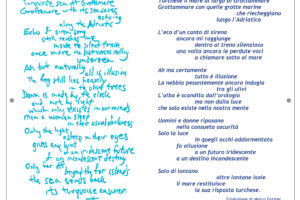 Turquoise sea off Grottammare
Grottammare with its sea caves
echoing
along the Adriatic
Echo of a siren's song
still reaches me
inside the silent train
once more,
Ah but naturally
all is illusion
The fog still lies heavily
in the olive trees
Dawn is made by the clock
and not by light
which only exists in our minds
Men & women sleep
in their usual darkness
Only the light
asleep in their eyes
gives any hint
of an iridescent future
& an incandescent destiny
Only far off
beyond the far islands
the sea sends back
its turquoise answer
Turchese il mare al largo di Grottammare
Grottammare con quelle grotte marine
che riecheggiano
lungo l'Adriatico
L'eco d'un canto di sirena
ancora mi raggiunge
dentro al treno silenzioso
una volta ancora le perdute voci
a chiamare sotto al mare
Ah ma certamente
tutto è illusione
La nebbia pesantemente ancora indugia
tra gli ulivi
L'alba è scandita dall'orologio
ma non dalla luce
che solo esiste nella nostra mente
Uomini e donne riposano
nella consueta oscurità
Solo la luce
in quegli occhi addormentata
fa allusione
a un futuro iridescente
a un destino incandescente
Solo di lontano
oltre lontane isole
il mare restituisce
la sua risposta turchese.
Traduzione di Marco